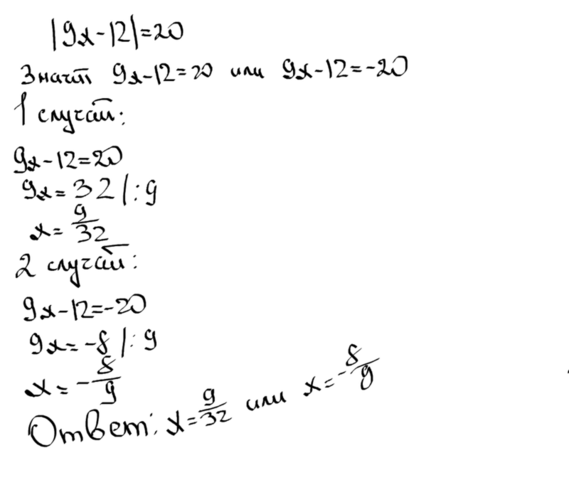 |9x-12|=20
Значит 9x-12=20 или 9x-12=-20
1 случай:
9x-12=20
9x=32 |:9
x=9/32
2 случай:
9x-12=-20
9x=-8 |:9
x=-8/9
Ответ: x=9/32 или x=-8/9